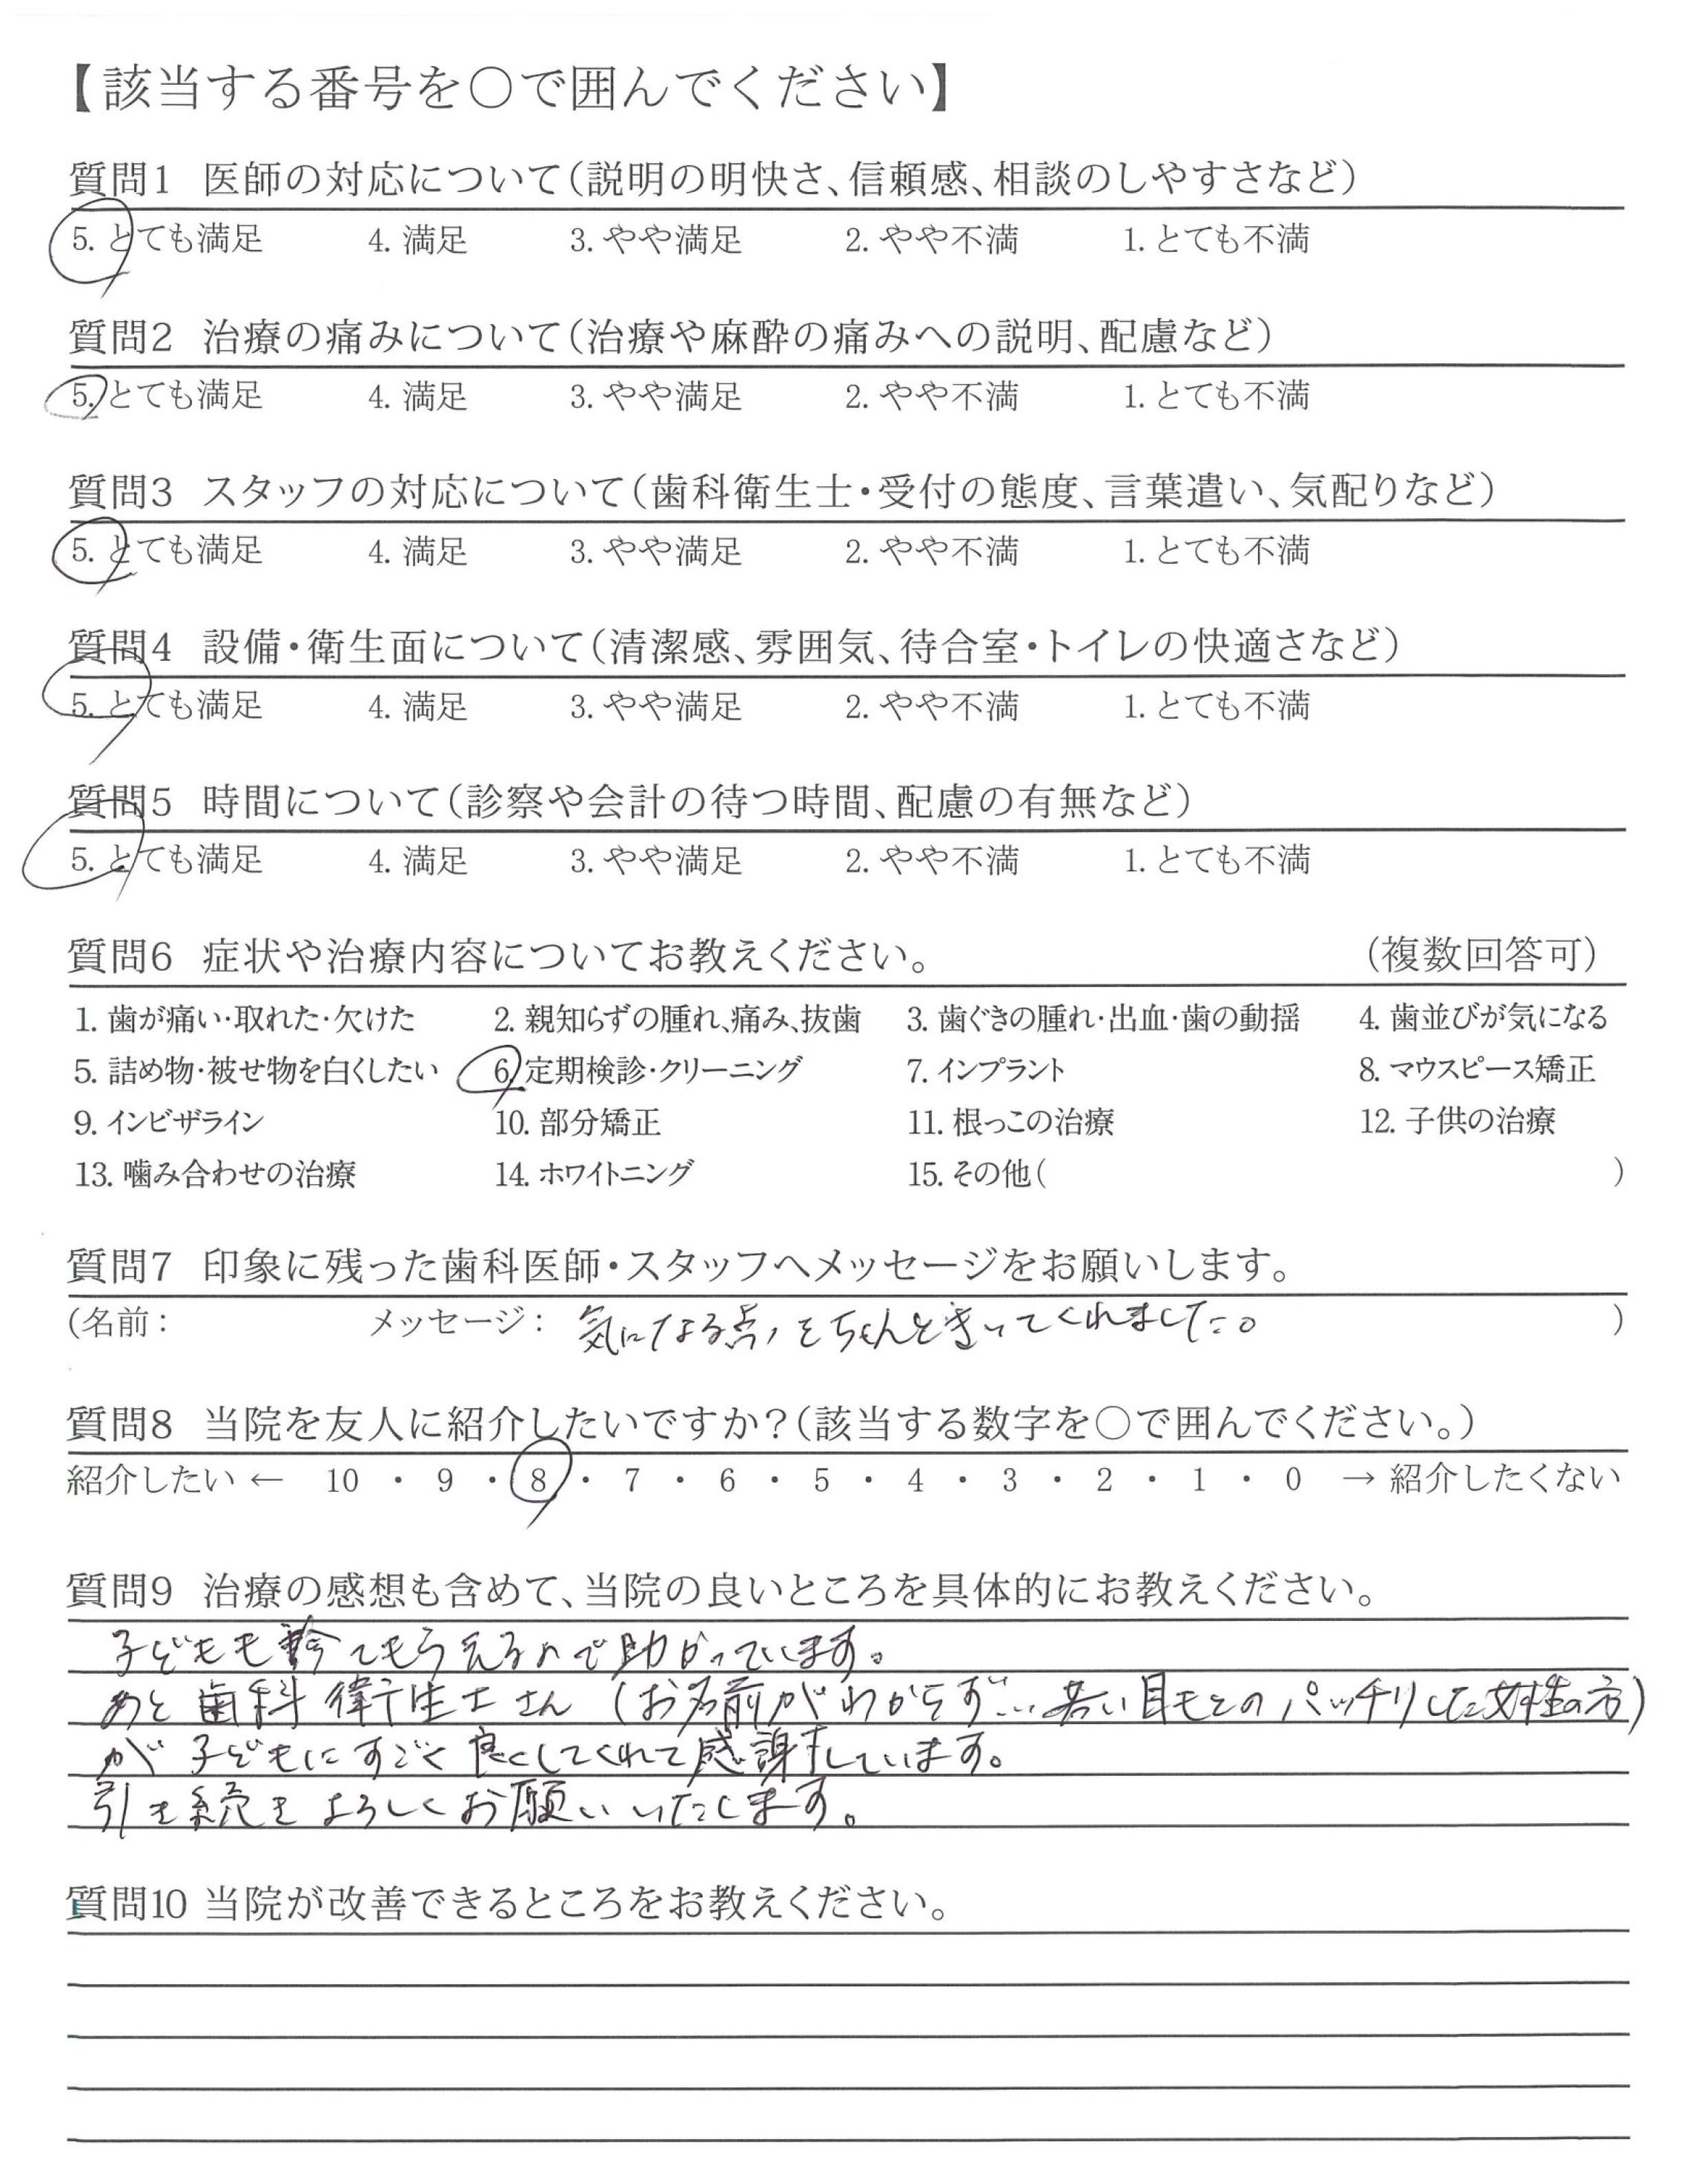 【該当する番号を〇で囲んでください】
質問1 医師の対応について(説明の明快さ、信頼感、相談のしやすさなど)
5. とても満足 4. 満足 3. やや満足 2. やや不満 1. とても不満
質問2 治療の痛みについて(治療や麻酔の痛みへの説明、配慮など)
5. とても満足 4. 満足 3. やや満足 2. やや不満 1. とても不満
質問3 スタッフの対応について(歯科衛生士・受付の態度、言葉遣い、気配りなど)
5. とても満足 4. 満足 3. やや満足 2. やや不満 1. とても不満
質問4 設備・衛生面について(清潔感、雰囲気、待合室・トイレの快適さなど)
5. とても満足 4. 満足 3. やや満足 2. やや不満 1. とても不満
質問5 時間について(診察や会計の待つ時間、配慮の有無など)
5. とても満足 4. 満足 3. やや満足 2. やや不満 1. とても不満
質問6 症状や治療内容についてお教えください。 (複数回答可)
1. 歯が痛い・取れた・欠けた 2. 親知らずの腫れ、痛み、抜歯 3. 歯ぐきの腫れ・出血・歯の動揺 4. 歯並びが気になる
5. 詰め物・被せ物を白くしたい 6. 定期検診・クリーニング 7. インプラント 8. マウスピース矯正
9. インビザライン 10. 部分矯正 11. 根っこの治療 12. 子供の治療
13. 噛み合わせの治療 14. ホワイトニング 15. その他( )
質問7 印象に残った歯科医師・スタッフへメッセージをお願いします。
(名前: メッセージ: 気になる点、をちゃんときいてくれました。 )
質問8 当院を友人に紹介したいですか?(該当する数字を〇で囲んでください。)
紹介したい ← 10 ・ 9 ・ 8 ・ 7 ・ 6 ・ 5 ・ 4 ・ 3 ・ 2 ・ 1 ・ 0 → 紹介したくない
質問9 治療の感想も含めて、当院の良いところを具体的にお教えください。
子どもも診てもらえるので助かっています。
あと歯科衛生士さん (お名前がわからず… 若い目もとのパッチリした女性の方)
が子どもにすごく良くしてくれて感謝しています。
引き続きよろしくお願いいたします。
質問10 当院が改善できるところをお教えください。